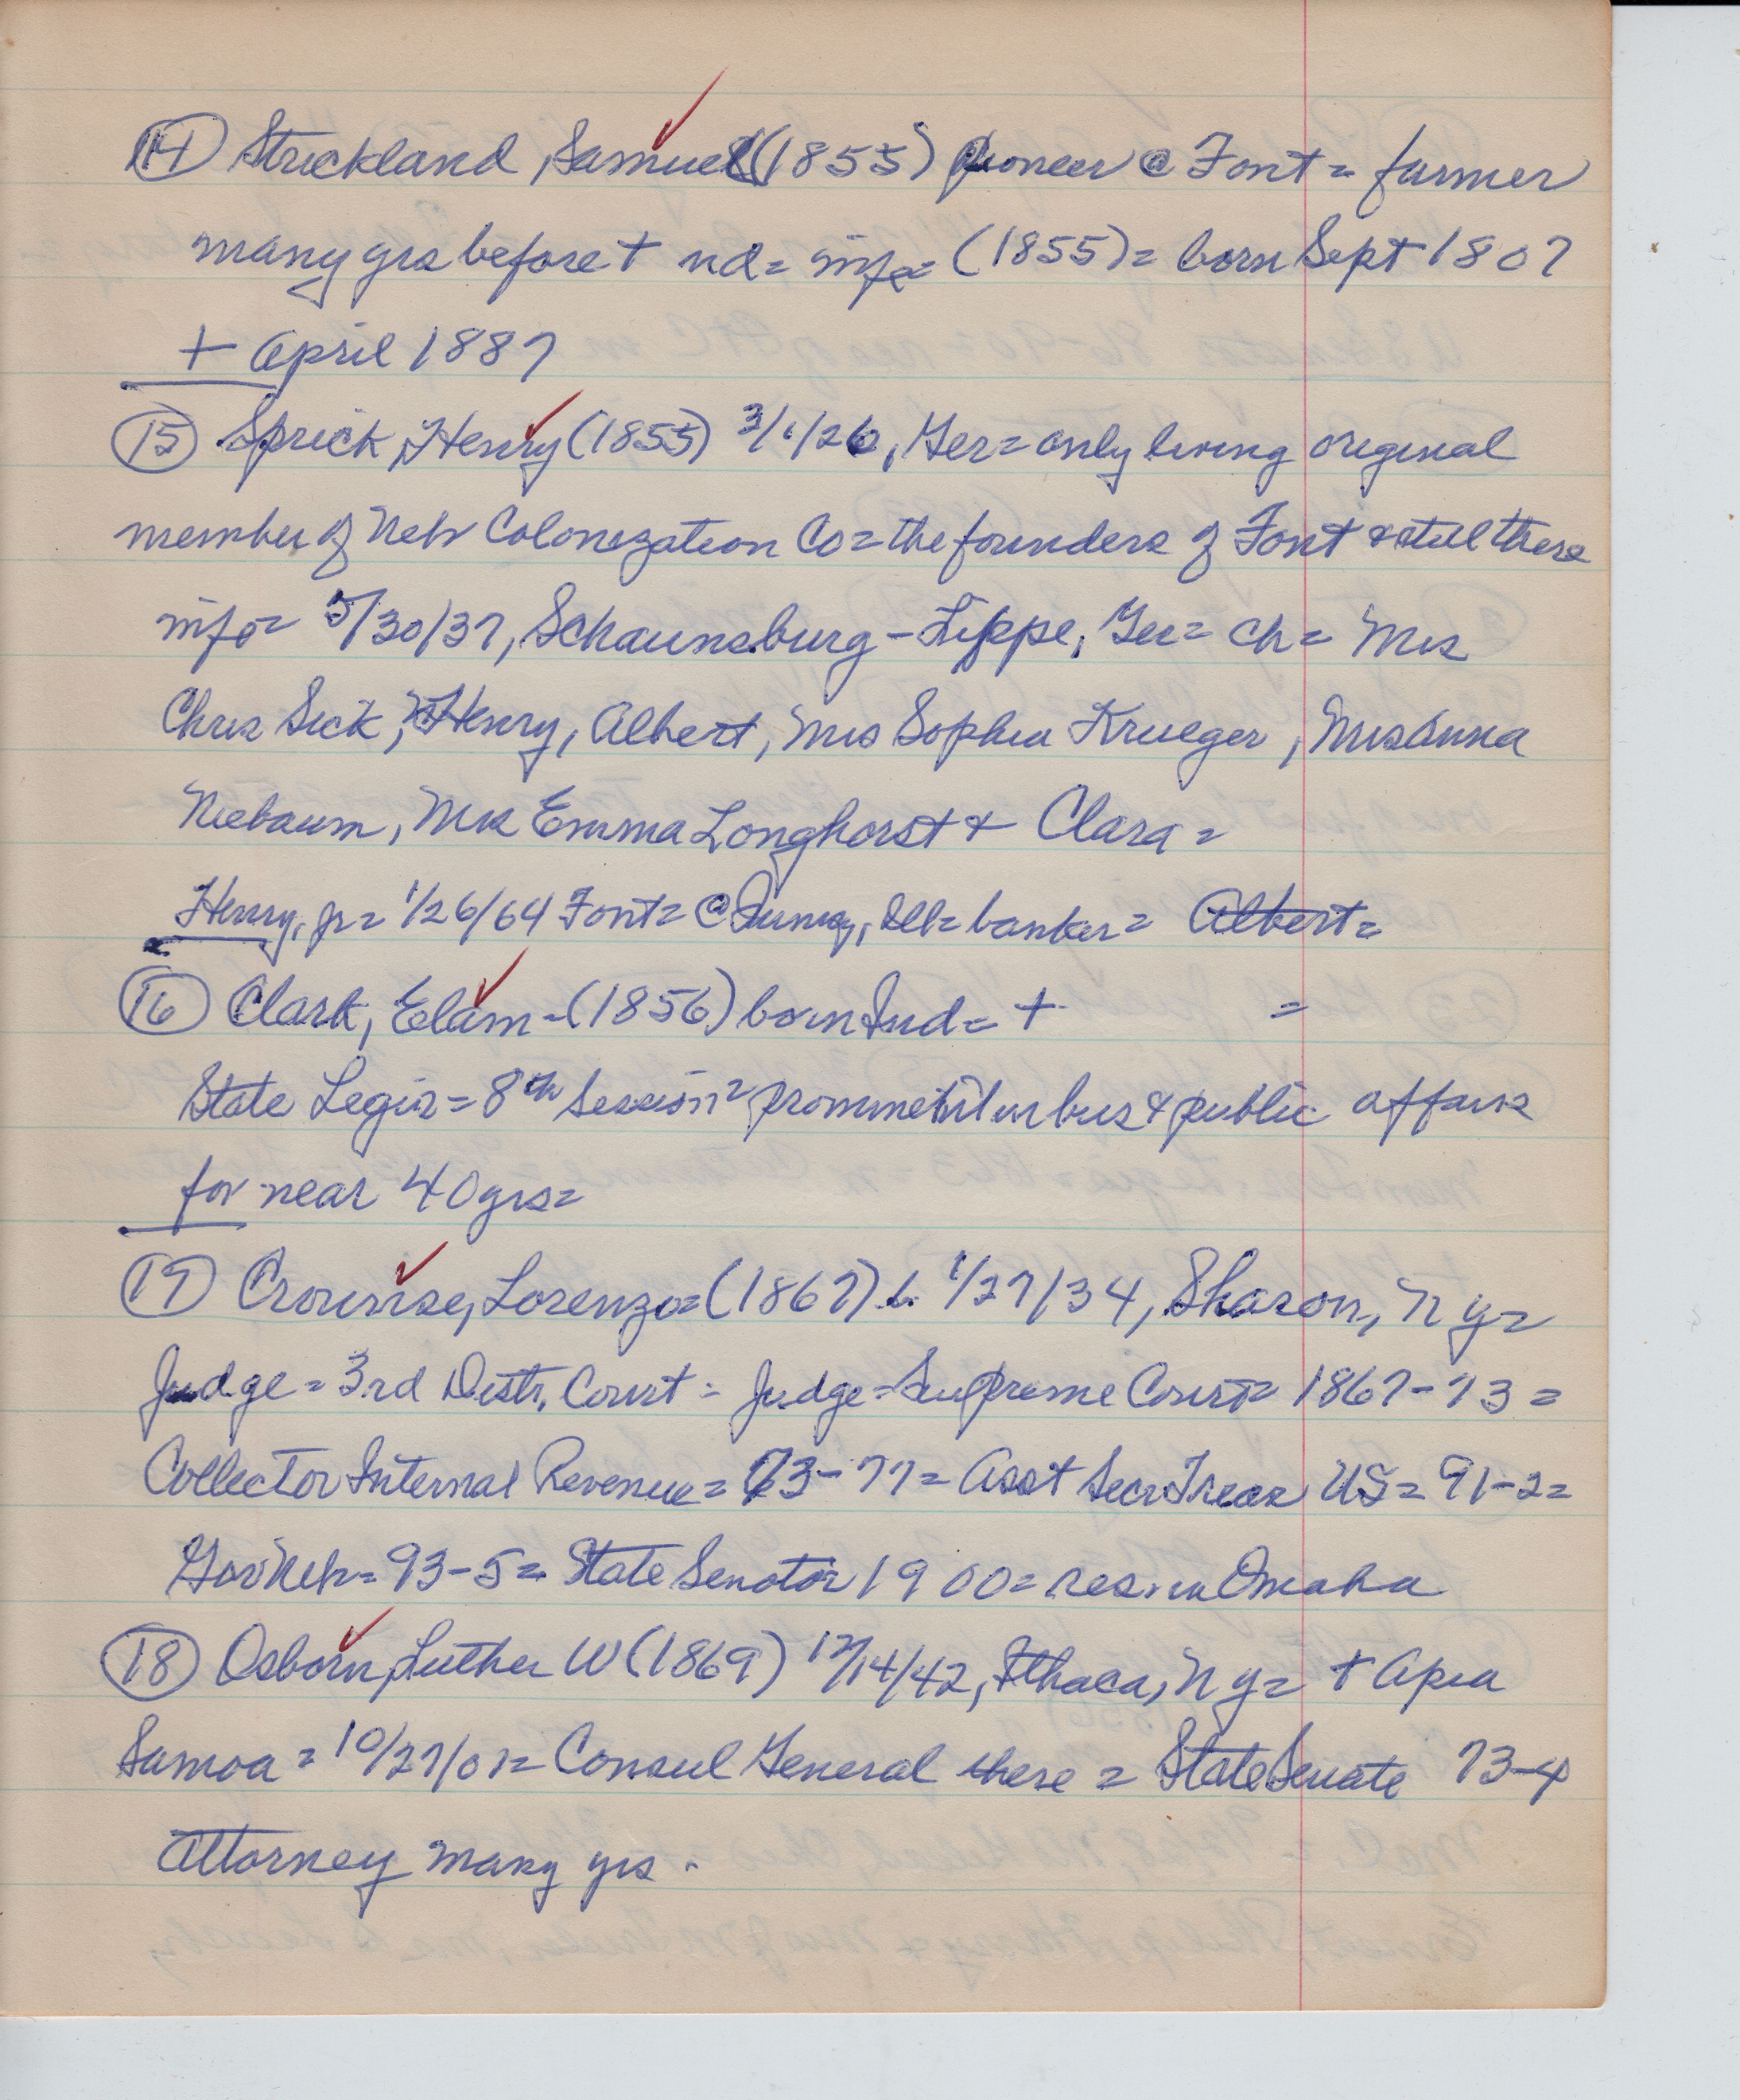 14 Strickland, Samuel (1855) pioneer @ Font = farmer
many yrs before + nd = info = (1855) = born Sept 1807
+ April 1887
15 Sprick, Henry (1855) 3/1/26, Ger = only living original
member of Neb Colonization Co = the founders of Font & still there
info = 5/30/37, Schaunsburg - Lippe, Ger = ch = Mrs
Chris Sick, Henry, Albert, Mrs Sophia Krueger, Mrs Anna
Niebaum, Mrs Emma Longhorst + Clara =
Henry, jr = 1/26/64 Font = @ Quincy, Ill = banker = Albert =
16 Clark, Elam - (1856) born Ind = + =
State Legis = 8th session = prominent in bus & public affairs
for near 40 yrs =
17 Crounse, Lorenzo = (1867) b. 1/27/34, Sharon, N Y =
Judge = 3rd Distr. Court = Judge = Supreme Court = 1867-73 =
Collector Internal Revenue = 73-77 = Asst Secr Treas US = 91-2 =
Gov Neb = 93-5 = State Senator 1900 = res. in Omaha
18 Osborn, Luther W (1869) 12/14/42, Ithaca, N Y = + Apia
Samoa = 10/27/01 = Consul General there = State Senate 73-4
Attorney many yrs.